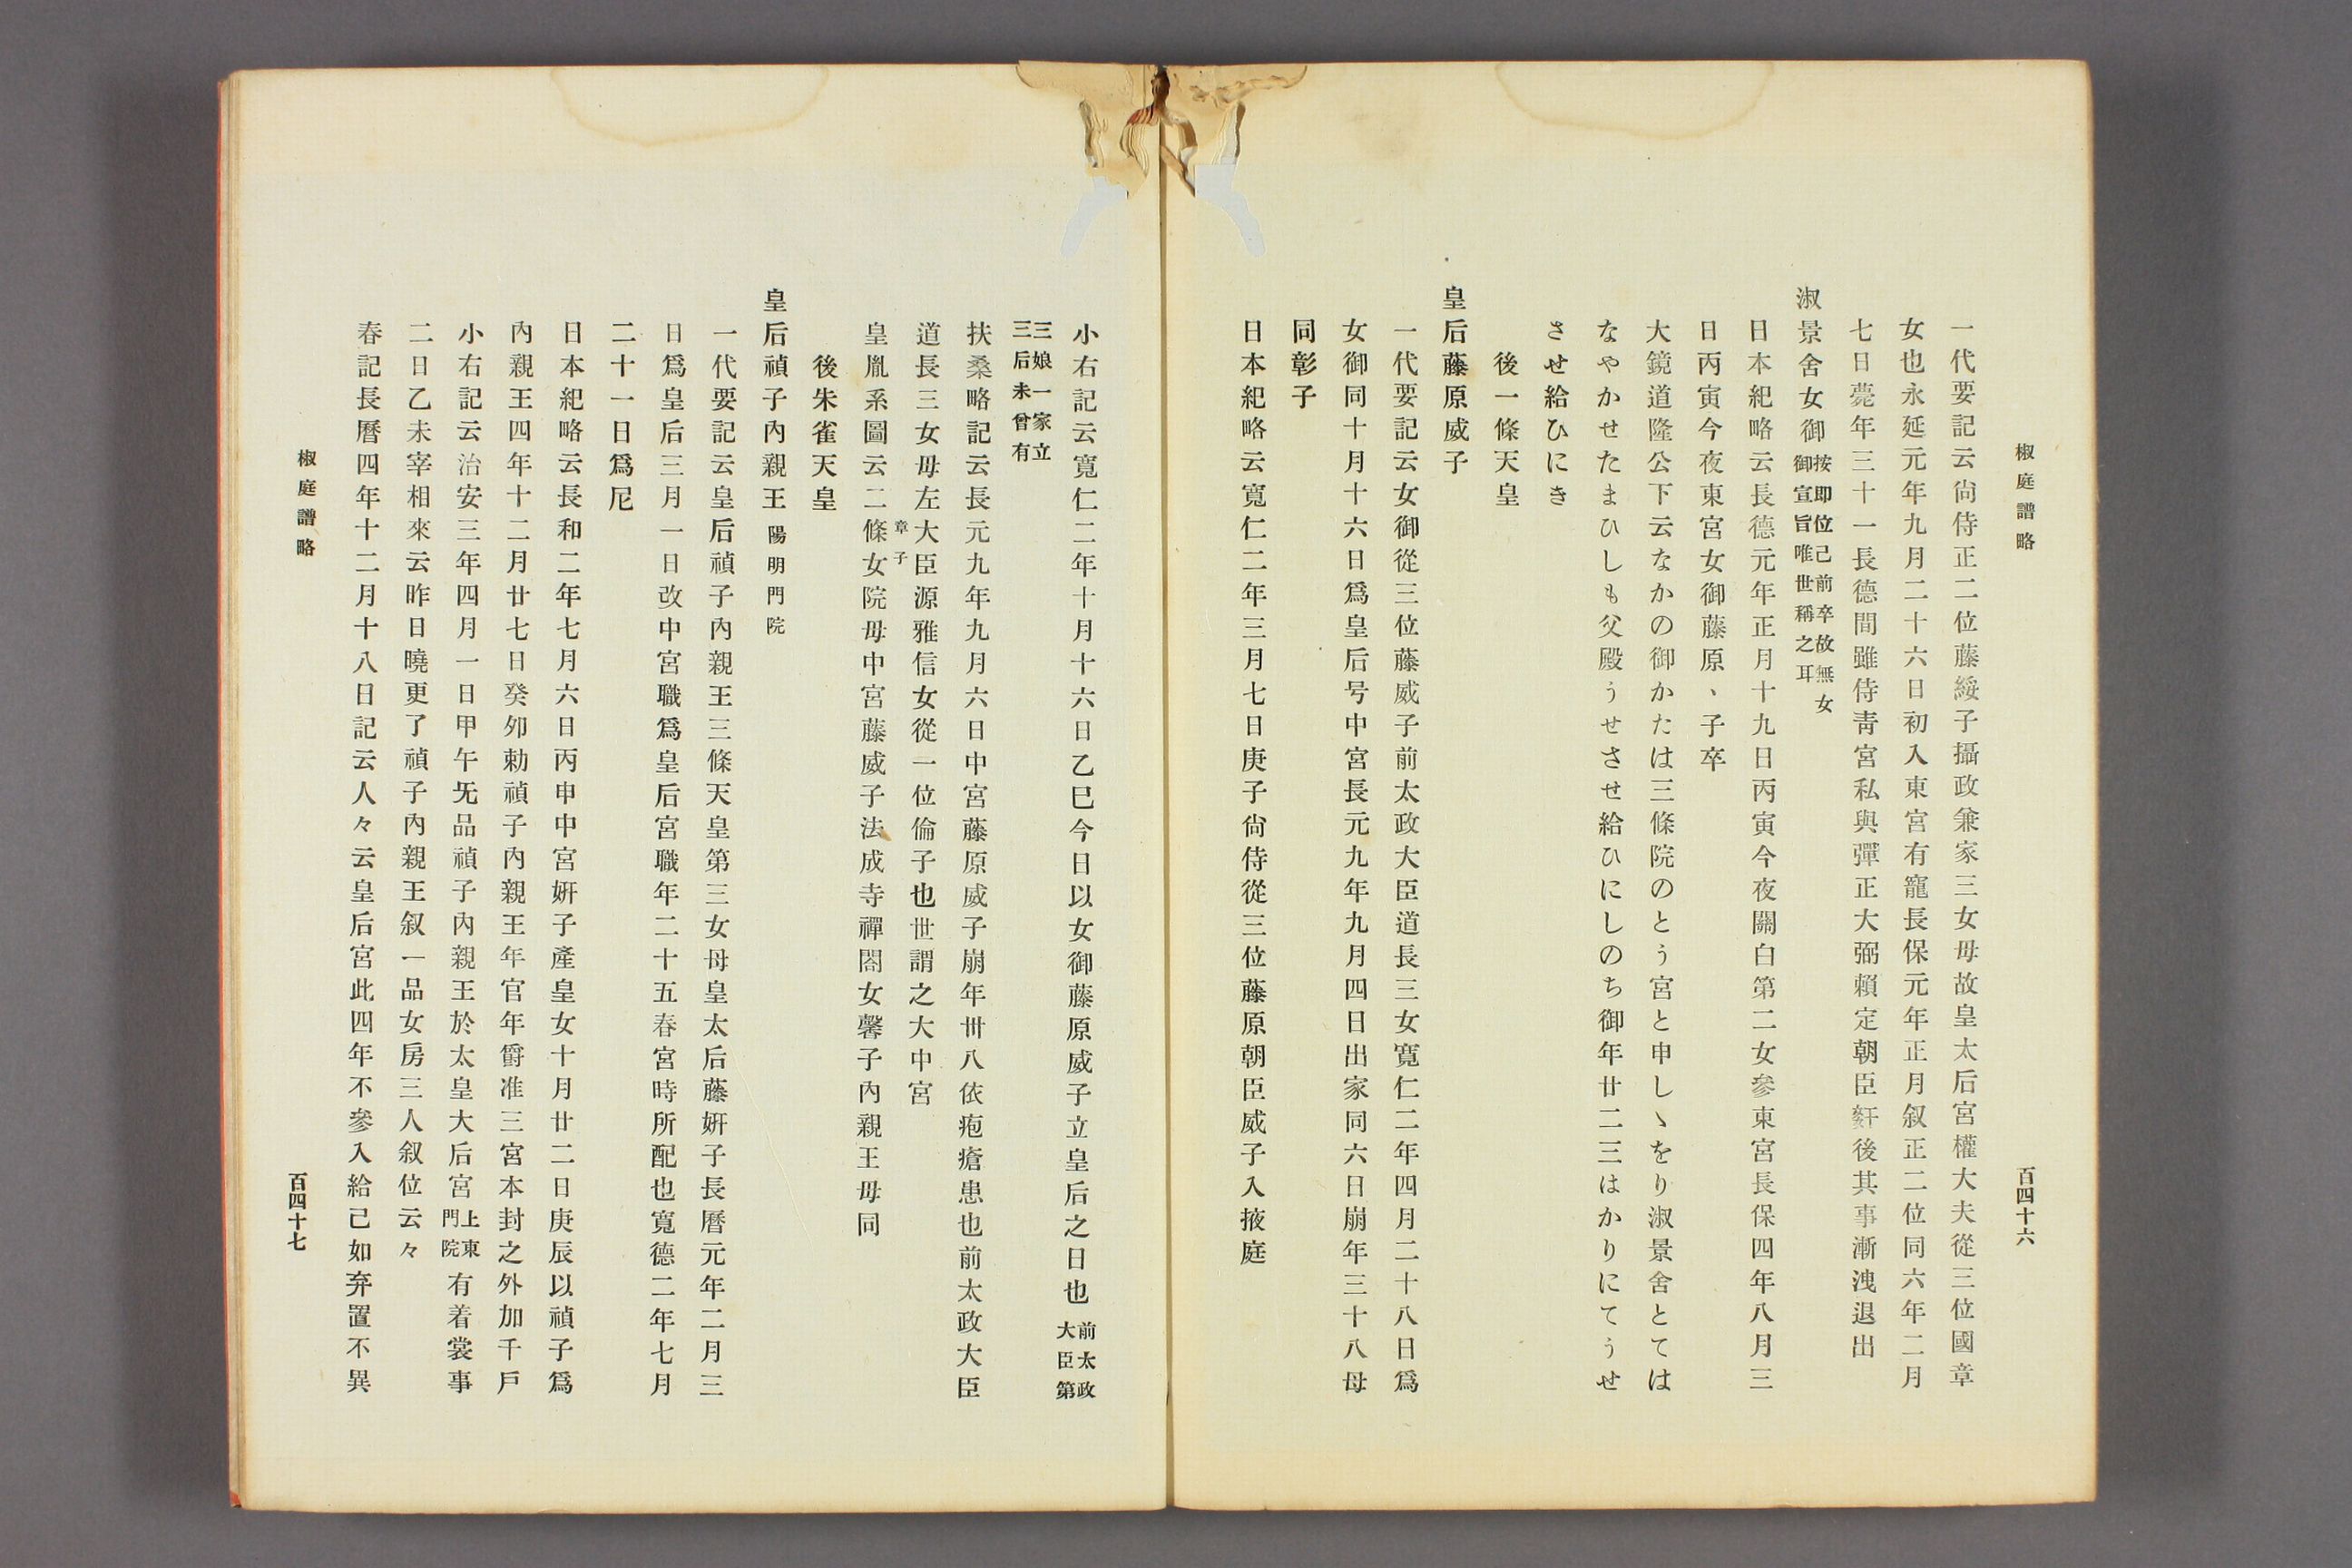 椒庭譜略
百四十六
一代要記云尙侍正二位藤綏子攝政兼家三女母故皇太后宮權大夫從三位國章
女也永延元年九月二十六日初入東宮有寵長保元年正月叙正二位同六年二月
七日薨年三十一長德間雖侍靑宮私與彈正大弼賴定朝臣姧後其事漸洩退出
淑景舍女御按卽位己前卒故無女御宣旨唯世稱之耳
日本紀略云長德元年正月十九日丙寅今夜關白第二女參東宮長保四年八月三
日丙寅今夜東宮女御藤原丶子卒
大鏡道隆公下云なかの御かたは三條院のとう宮と申しゝをり淑景舍とては
なやかせたまひしも父殿うせさせ給ひにしのち御年廿二三はかりにてうせ
させ給ひにき
後一條天皇
皇后藤原威子
一代要記云女御從三位藤威子前太政大臣道長三女寬仁二年四月二十八日爲
女御同十月十六日爲皇后号中宮長元九年九月四日出家同六日崩年三十八母
同彰子
日本紀略云寬仁二年三月七日庚子尙侍從三位藤原朝臣威子入掖庭
小右記云寬仁二年十月十六日乙巳今日以女御藤原威子立皇后之日也前太政大臣第
三娘一家立三后未曾有
扶桑略記云長元九年九月六日中宮藤原威子崩年卅八依疱瘡患也前太政大臣
道長三女母左大臣源雅信女從一位倫子也世謂之大中宮
皇胤系圖云二條章子女院母中宮藤威子法成寺禪閤女馨子內親王母同
後朱雀天皇
皇后禎子內親王陽明門院
一代要記云皇后禎子內親王三條天皇第三女母皇太后藤姸子長曆元年二月三
日爲皇后三月一日改中宮職爲皇后宮職年二十五春宮時所配也寬德二年七月
二十一日爲尼
日本紀略云長和二年七月六日丙申中宮姸子產皇女十月廿二日庚辰以禎子爲
內親王四年十二月廿七日癸夘勅禎子內親王年官年爵准三宮本封之外加千戶
小右記云治安三年四月一日甲午旡品禎子內親王於太皇大后宮上東門院有着裳事
二日乙未宰相來云昨日曉更了禎子內親王叙一品女房三人叙位云々
春記長曆四年十二月十八日記云人々云皇后宮此四年不參入給己如弃置不異
椒庭譜略
百四十七